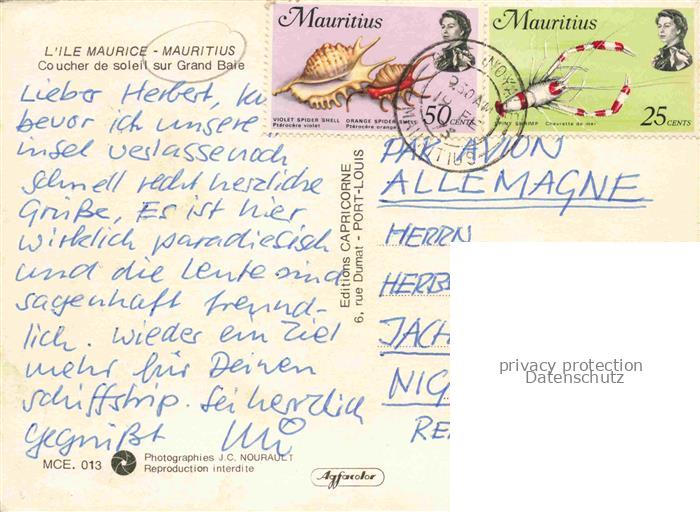 L'ILE MAURICE - MAURITIUS
Coucher de soleil sur Grand Baie
Lieber Herbert,
bevor ich unsere
insel verlasse noch
schnell recht herzliche
Grüße. Es ist hier
wirklich paradiesisch
und die Leute sind
sagenhaft freund-
lich. Wieder ein Ziel
mehr für Deinen
Schiffstrip. Sei herzlich
gegrüßt Uli
MCE. 013
Photographies J.C. NOURAULT
Reproduction interdite
Editions CAPRICORNE
6, rue Dumat - PORT-LOUIS
Agfacolor
Mauritius
50 CENTS
VIOLET SPIDER SHELL
Ptérocère violet
ORANGE SPIDER SHELL
Ptérocère orange
Mauritius
25 CENTS
SPINY SHRIMP Chevrette de mer
MAURITIUS
PAR AVION
ALLEMAGNE
HERRN
HERB
JACH
NIG
RE
privacy protection
Datenschutz